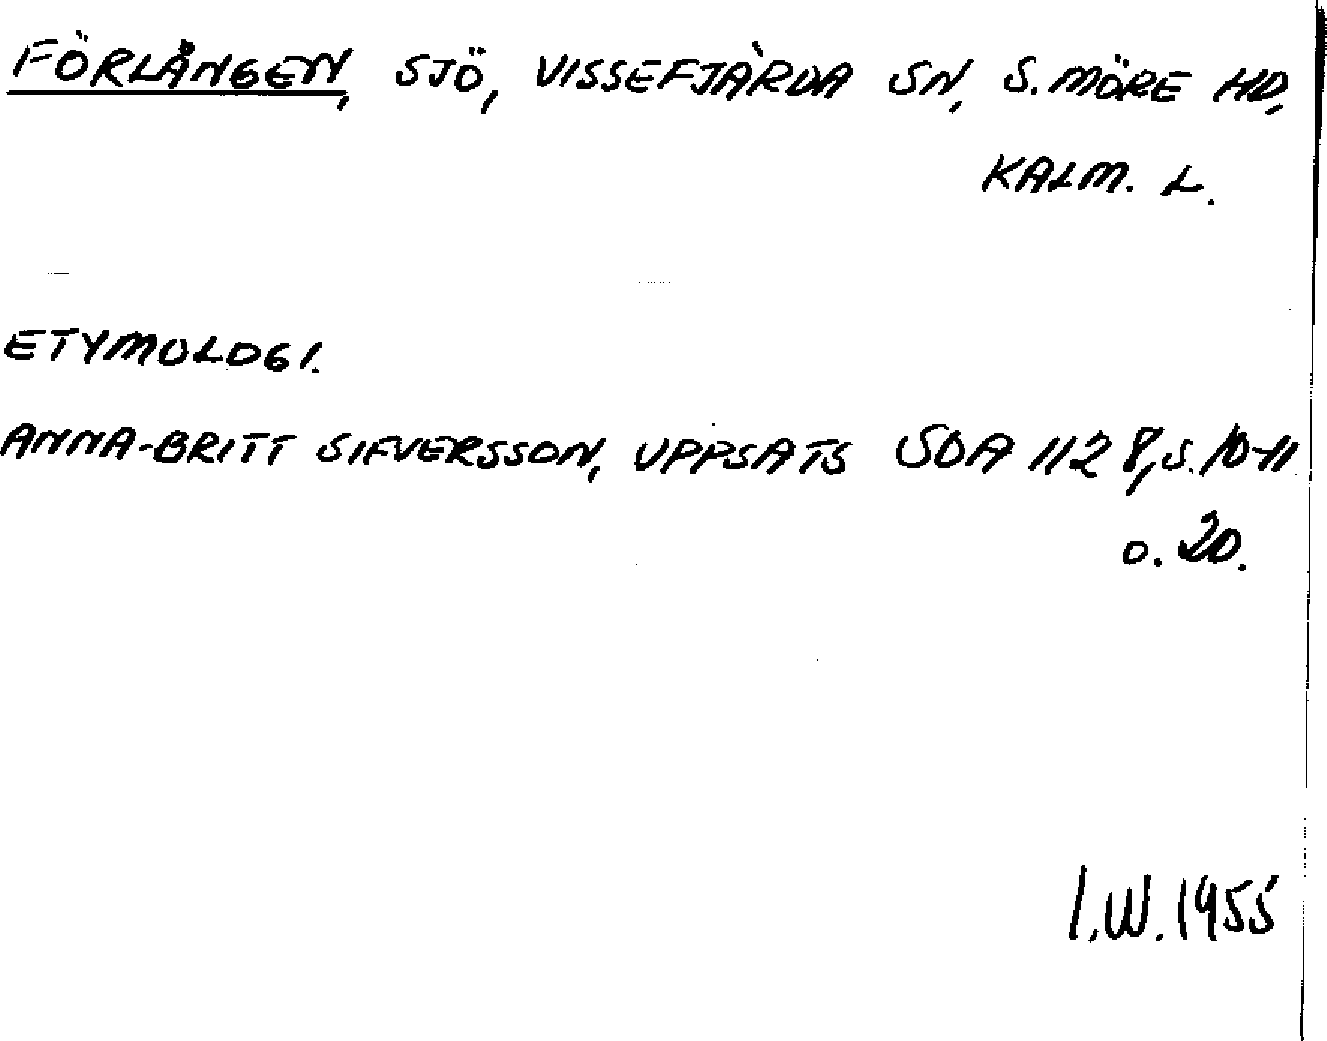 FÖRLÅNGEN, SJÖ, VISSEFJÄRDA SN, S. MÖRE HD,
KALM. L.
ETYMOLOGI.
ANNA-BRITT SIFVERSSON, UPPSATS SOA 1128, s. 10-11
o. 20.
I.W. 1955